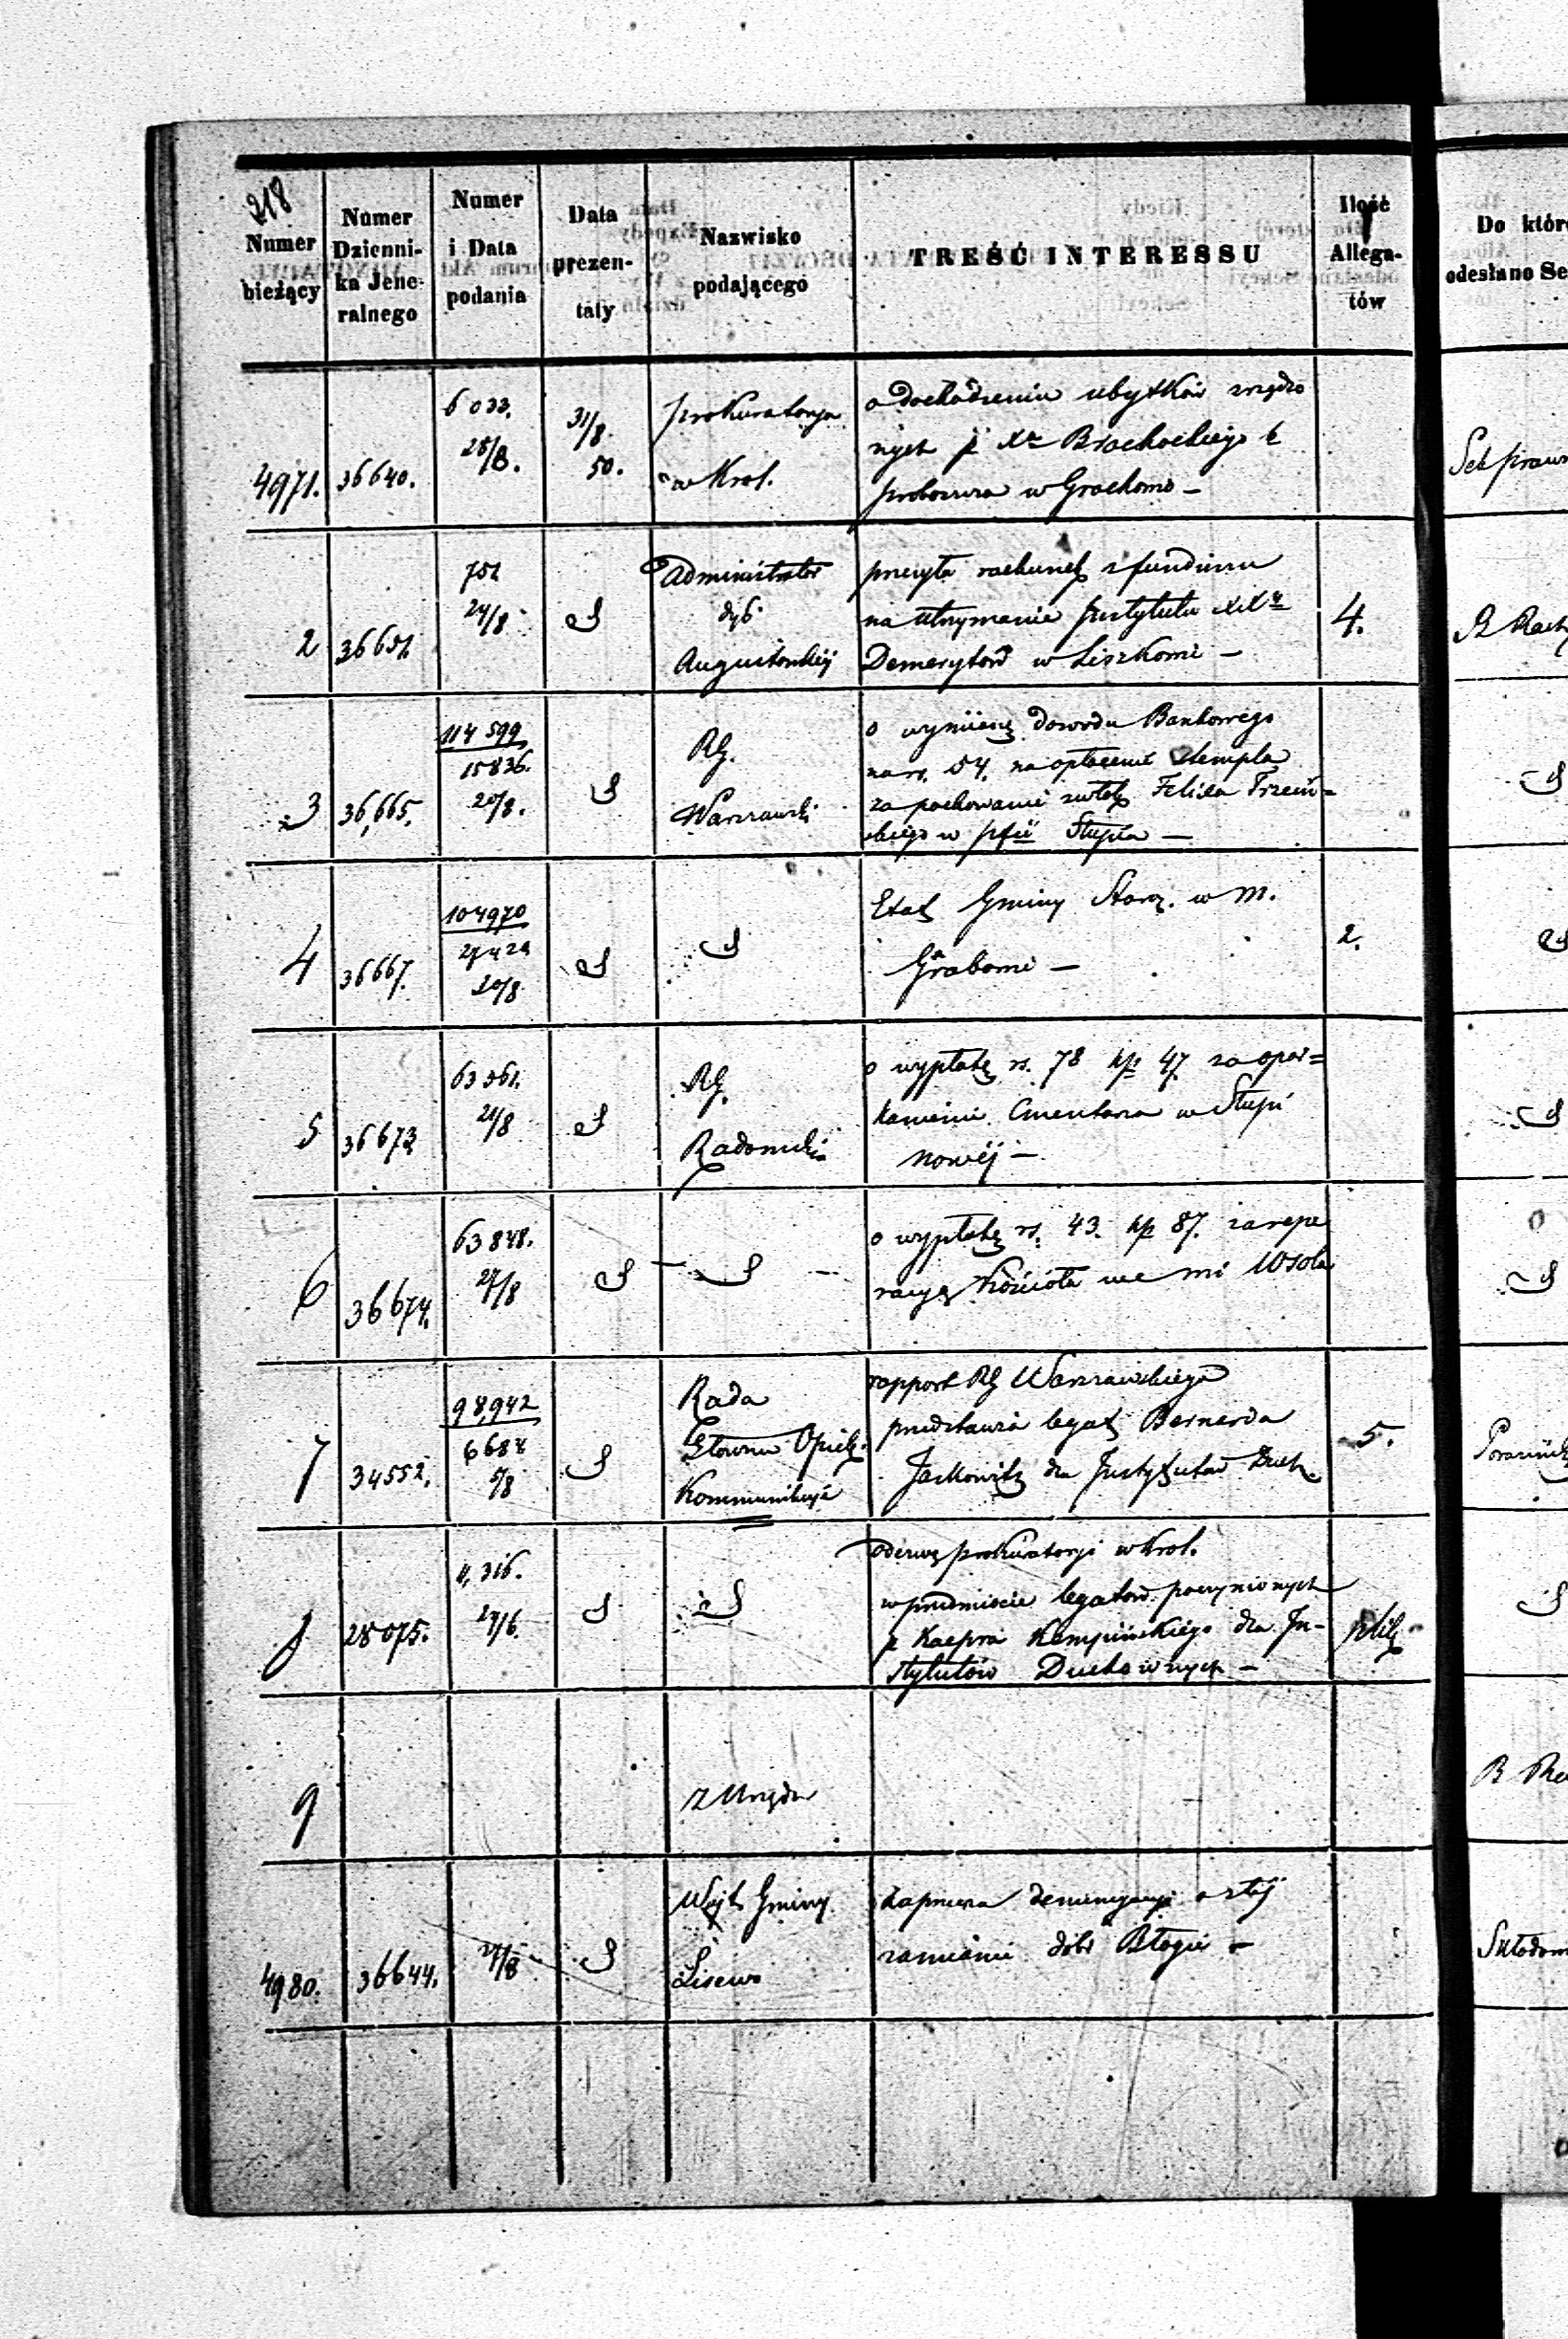 218
Numer bieżący
Numer Dzienni-ka Jene-ralnego
Numer i Data podania
Data prezen-taty
Nazwisko podającego
TREŚĆ INTERESSU
Ilość Allega-tów
Do któr
odesłano Se
4971. 36640. 6033. 28/8. 31/8. 50.
Prokuratorya
w Krol.
o dochodzeniu ubytków zrządzo
nych p Xa Brochockiego b
proboszcza w Grochowie –
Sek praw
2 36651. 702 24/8
Administrator
dyć
Augustowskiej
przesyła rachunek z funduszu
na utrzymanie Instytutu XXy
Demerytów w Liszkowie –
4.
3 36,665. 114 599 15836. 20/8.
RG.
Warszawski
o wymianę dowodu Bankowego
na rs. 54. na opłacenie stempla
za pochowanie zwłok Felixa Trzciń=
skiego w pfii Słupia –
4 36667. 104970 27429 20/8
Etat Gminy Starz. w M.
Grabowie –
2.
5 36673 63361. 21/8
RG.
Radomski
o wypłatę rs. 78 kp 47. za opar=
kanienie Cmentarza w Słupi
Nowéj –
6 36674. 63848. 27/8
o wypłatę rs. 43. kp 87. za repe
racyą Kościoła we wsi Wsola
7 34552. 98,942 6684 5/8
Rada
Główna Opiek.
Kommunikuje
rapport RG Warszawskiego
przedstawia legat Bernarda
Jaskowitz dla Instytutów Duch.
5.
8 28075. 4,316. 27/6.
odezwę prokuratorji w Krol.
w przedmiocie legatów poczynionych
p Kacpra Kempińskiego dla In-
stytutów Duchownych –
plik
9
z Urzędu
4980. 36644. 27/8
Wójt Gminy
Lisewo
zaprzecza denuncyacyi o złéj
zamianie dóbr Błogie –